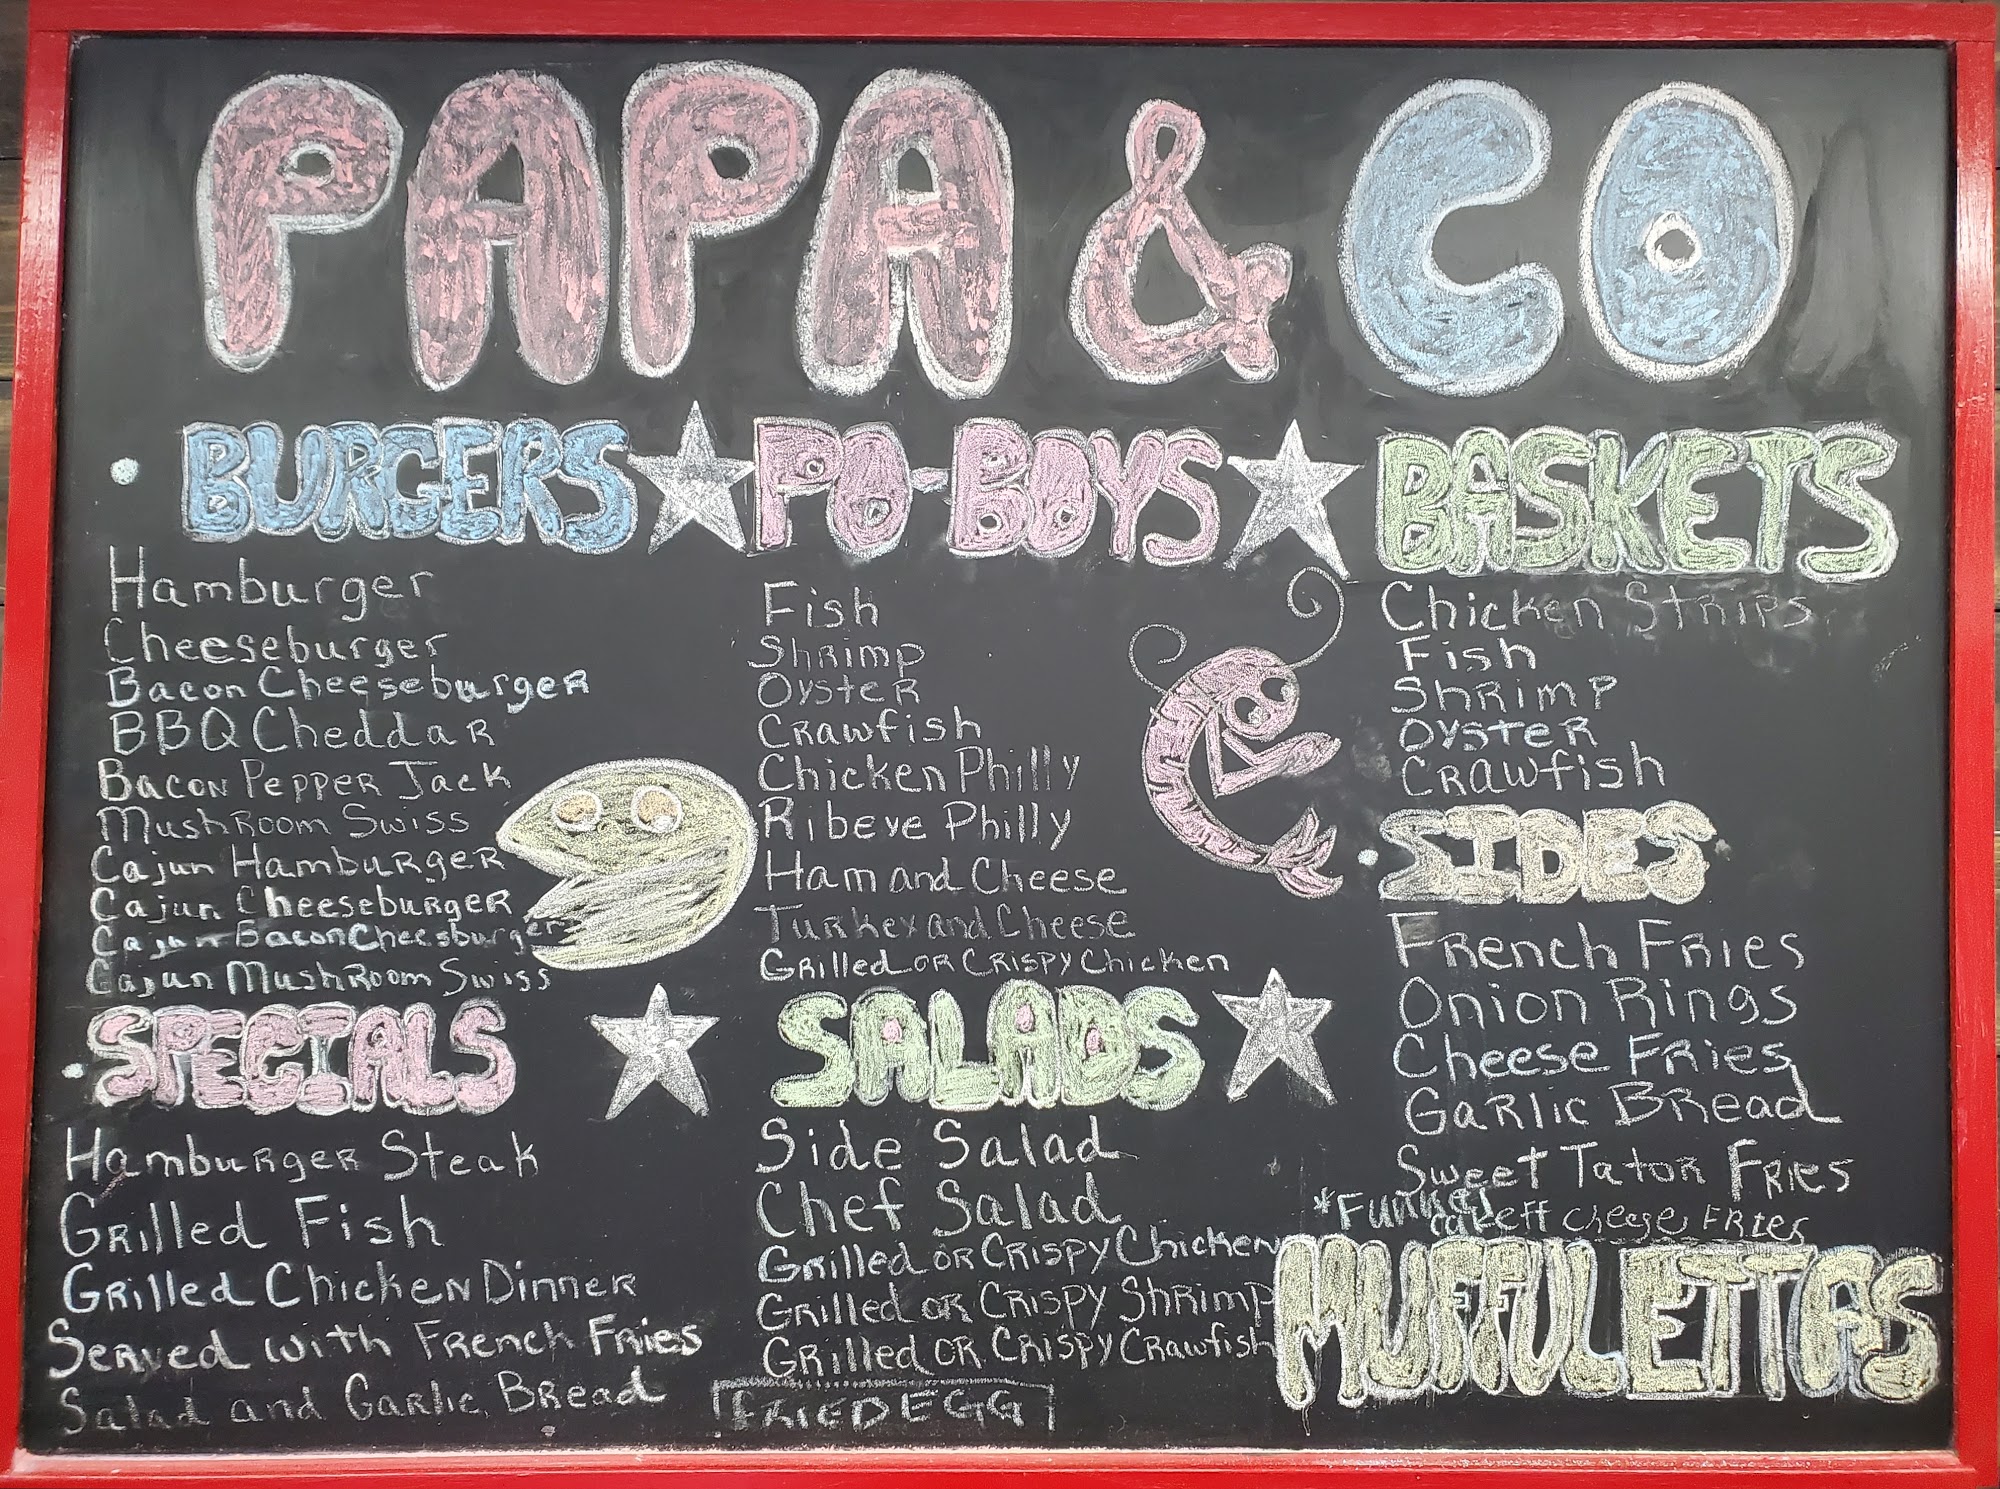 PAPA & CO
BURGERS
Hamburger
Cheeseburger
Bacon Cheeseburger
BBQ Cheddar
Bacon Pepper Jack
Mushroom Swiss
Cajun Hamburger
Cajun Cheeseburger
Cajun Bacon Cheesburger
Cajun Mushroom Swiss
SPECIALS
Hamburger Steak
Grilled Fish
Grilled Chicken Dinner
Served with French Fries
Salad and Garlic Bread
PO-BOYS
Fish
Shrimp
Oyster
Crawfish
Chicken Philly
Ribeye Philly
Ham and Cheese
Turkey and Cheese
Grilled or Crispy Chicken
SALADS
Side Salad
Chef Salad
Grilled or Crispy Chicken
Grilled or Crispy Shrimp
Grilled or Crispy Crawfish
FRIED EGG
BASKETS
Chicken Strips
Fish
Shrimp
Oyster
Crawfish
SIDES
French Fries
Onion Rings
Cheese Fries
Garlic Bread
Sweet Tator Fries
cheese Fries
MUFFULETTAS